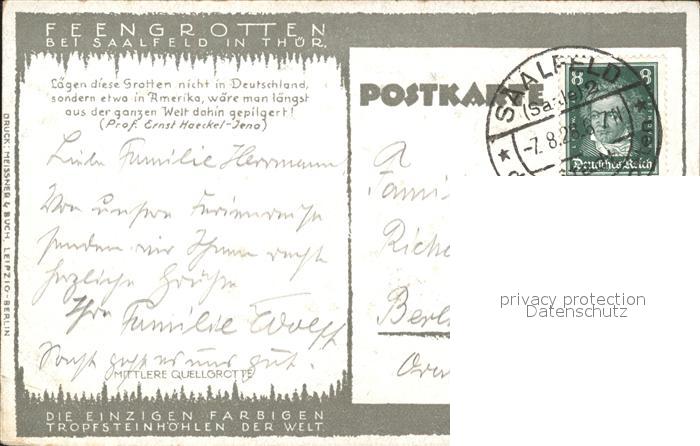 FEENGROTTEN
BEI SAALFELD IN THÜR.
Lägen diese Grotten nicht in Deutschland,
sondern etwa in Amerika, wäre man längst
aus der ganzen Welt dahin gepilgert!
(Prof. Ernst Haeckel-Jena)
Liebe Familie Herrmann
Von unserer Ferienreise
senden wir Ihnen recht
herzliche Grüße
Ihre Familie Wolff
Sonst geht es uns gut.
MITTLERE QUELLGROTTE
DIE EINZIGEN FARBIGEN
TROPFSTEINHÖHLEN DER WELT.
DRUCK: MEISSNER & BUCH, LEIPZIG-BERLIN
POSTKARTE
SAALFELD
(Saale) 2
-7.8.28.
8 8
Deutsches Reich
Fami
Berl
privacy protection
Datenschutz